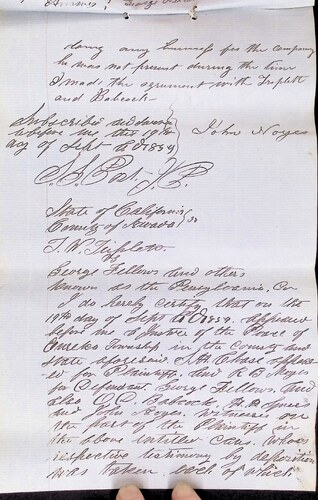 doing any business for the company
he was not present during the time
I made the agreement with Triplett
and Babcock
Subscribed and sworn
before me this 19th
day of Sept AD 1859
John Noyes
S. S. Post J.P.
State of California
County of Nevada } ss
T. W. Triplett
vs
George Fellows and others
known as the Pennsylvania Co
I do hereby certify that on the
19th day of Sept AD 1859 appeared
before me a Justice of the Peace of
Eureka Township in the County and
State aforesaid Chase appear
ed for Plaintiff. And R B Noyes
for Defendant. George Fellows. And
also Babcock
and John Noyes. witnesses on
the part of the Plaintiff in
the above entitled case. whose
respective testimony by deposition
was taken each of which